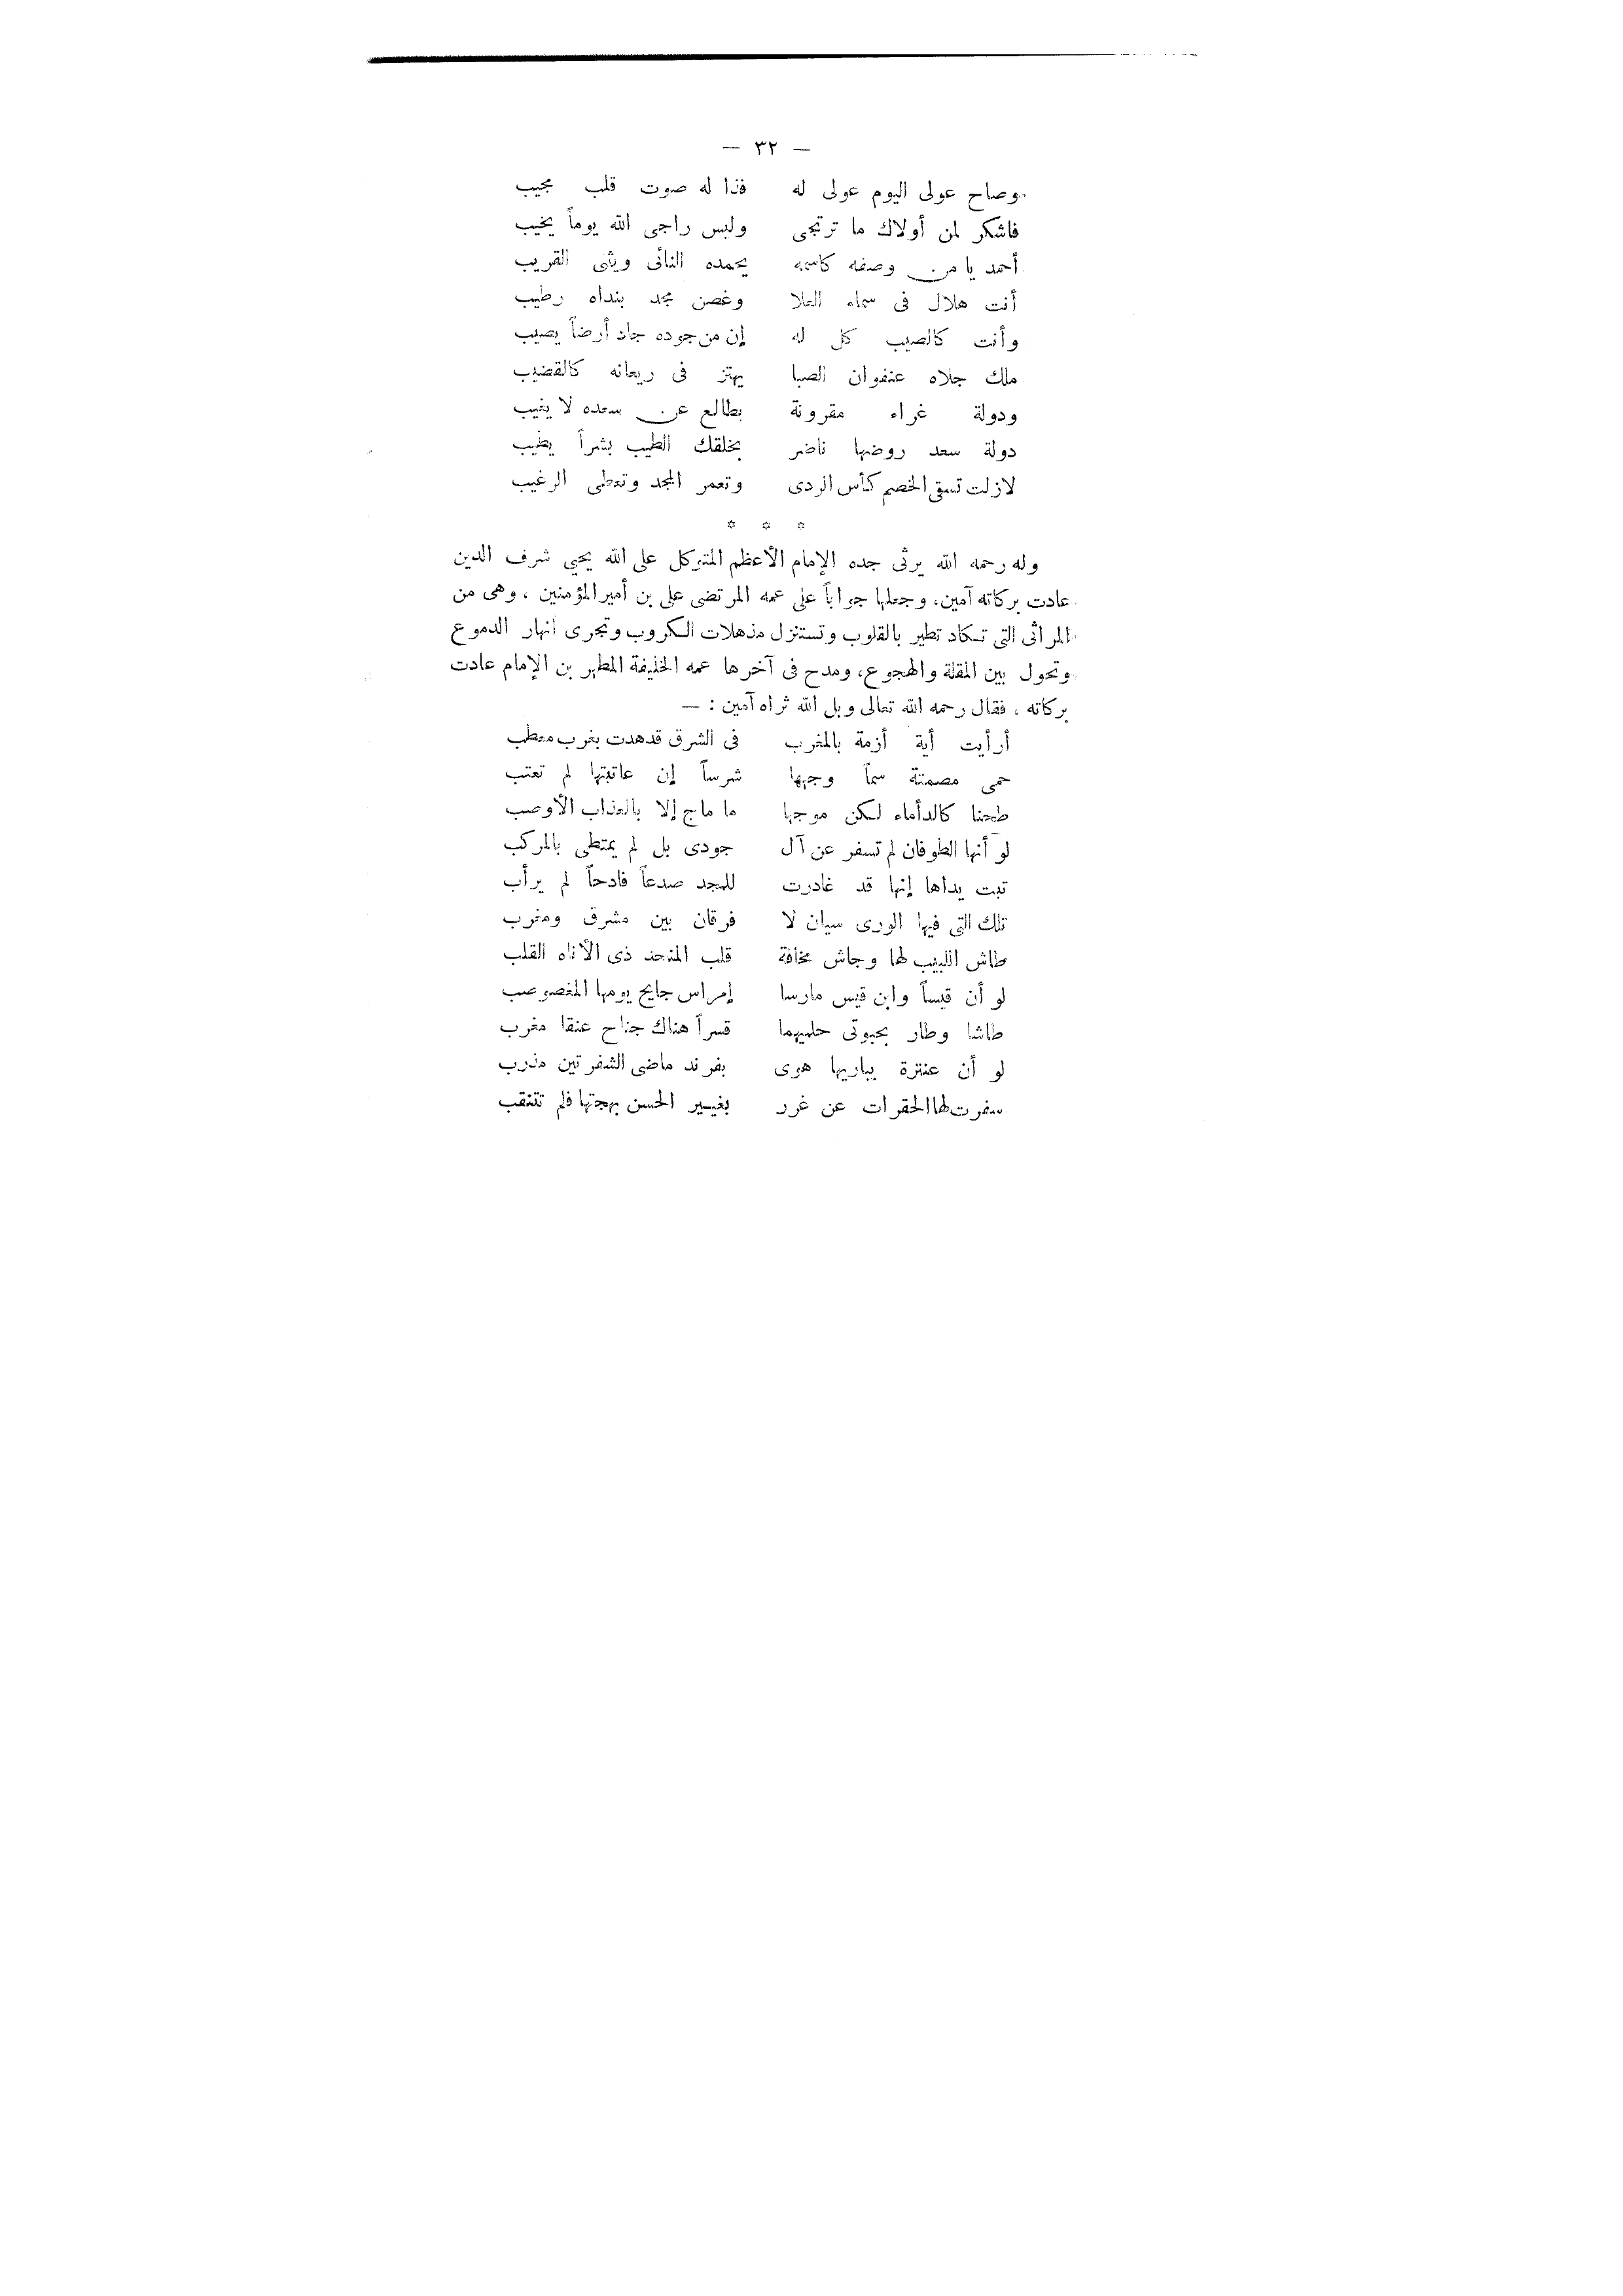 — ٣٢ —
وصاح عولى اليوم عولى له فذا له صوت قلب مجيب
فاشكر لمن أولاك ما ترتجى وليس راجى الله يوماً يخيب
أحمد يا من وصفه كاسمه يحمده النائى ويثنى القريب
أنت هلال فى سماء العلا وغصن مجد بنداه رطيب
وأنت كالصيب كل له إن من جوده جاد أرضاً يصيب
ملك جلاه عنفوان الصبا يهتز فى ريعانه كالقضيب
ودولة غراء مقرونة بطالع عن سعده لا يغيب
دولة سعد روضها ناضر بخلقك الطيب بشراً يطيب
لازلت تسقى الخصم كأس الردى وتعمر المجد وتعطى الرغيب
* * *
وله رحمه الله يرثى جده الإمام الأعظم المتوكل على الله يحيى شرف الدين
عادت بركاته آمين، وجعلها جواباً على عمه المرتضى على بن أمير المؤمنين ، وهى من
المراثى التى تكاد تطير بالقلوب وتستنزل مذهلات الكروب وتجرى أنهار الدموع
وتحول بين المقلة والهجوع، ومدح فى آخرها عمه الخليفة المطهر بن الإمام عادت
بركاته ، فقال رحمه الله تعالى وبل الله ثراه آمين : —
أرأيت أية أزمة بالمغرب فى الشرق قد هدت بغرب معطب
حمى مصمتة سماً وجهها شرساً إن عاتبتها لم تعتب
طحنا كالدأماء لكن موجها ما ماج إلا بالعذاب الأوصب
لو أنها الطوفان لم تسفر عن آل جودى بل لم يمتطى بالمركب
تبت يداها إنها قد غادرت للمجد صدعاً فادحاً لم يرأب
تلك التى فيها الورى سيان لا فرقان بين مشرق ومغرب
طاش اللبيب لها وجاش مخافة قلب المنجد ذى الأناه القلب
لو أن قيساً وابن قيس مارسا إمراس جايح يومها المغصوصب
طاشا وطار بحبوتى حلميهما قسراً هناك جناح عنقا مغرب
لو أن عنترة يباريها هوى بفرند ماضى الشفرتين مذرب
سفرت لها الحقرات عن غرر بغيير الحسن بهجتها فلم تتنقب